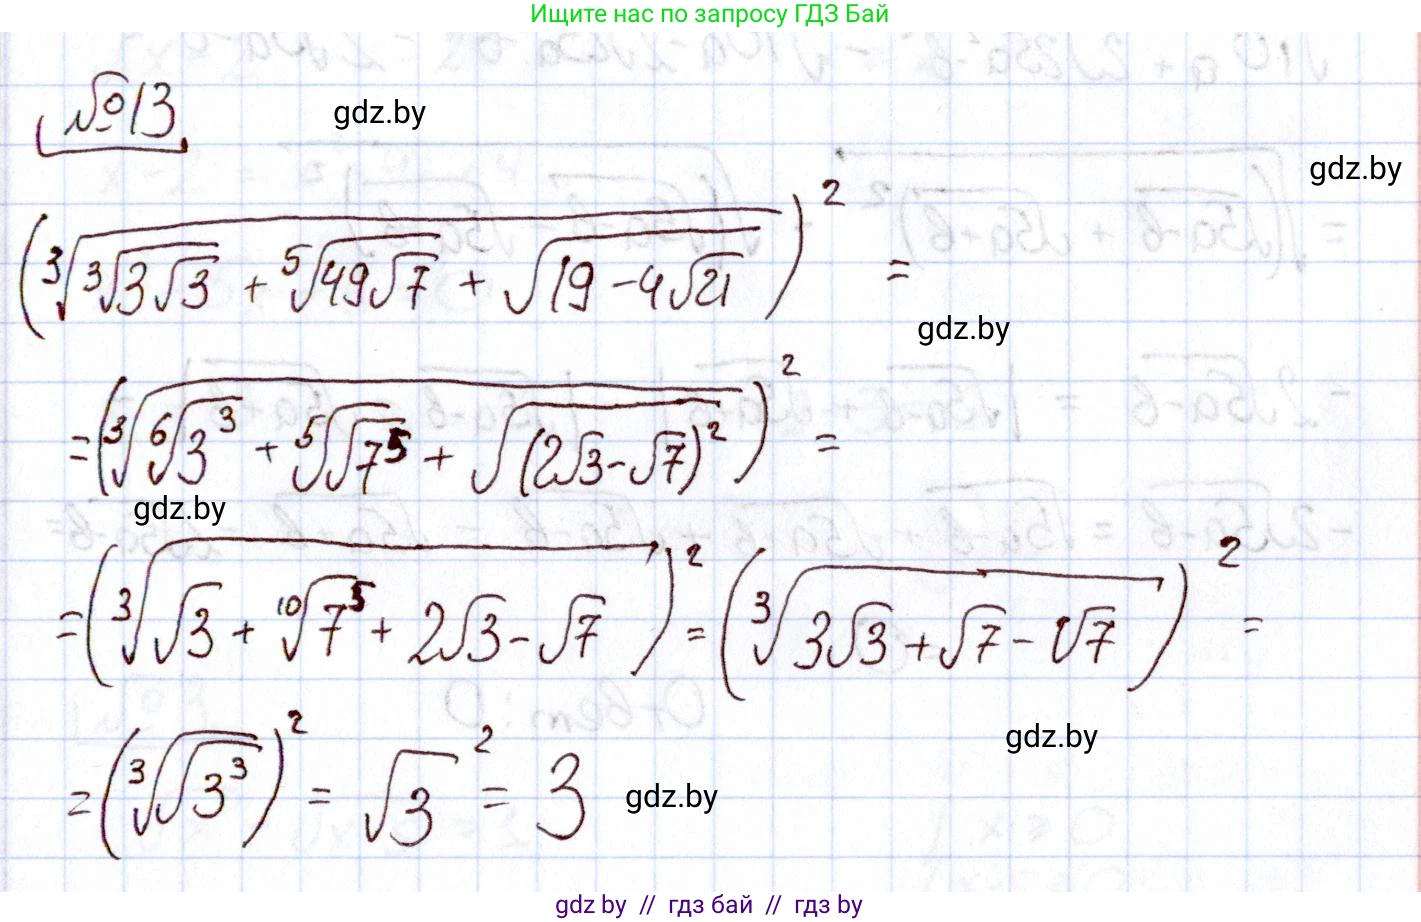 Ищите нас по запросу ГДЗ Бай
№13
gdz.by
gdz.by
(∛(∛(3√3) + ⁵√(49√7) + √(19 - 4√21)))² =
gdz.by
= (∛(⁶√(3³) + ⁵√(√(7⁵)) + √((2√3 - √7)²)))² =
gdz.by
= (∛(√3 + ¹⁰√(7⁵) + 2√3 - √7))² = (∛(3√3 + √7 - √7))² =
gdz.by
= (∛(√(3³)))² = √3² = 3
gdz.by
gdz by // гдз бай // гдз by